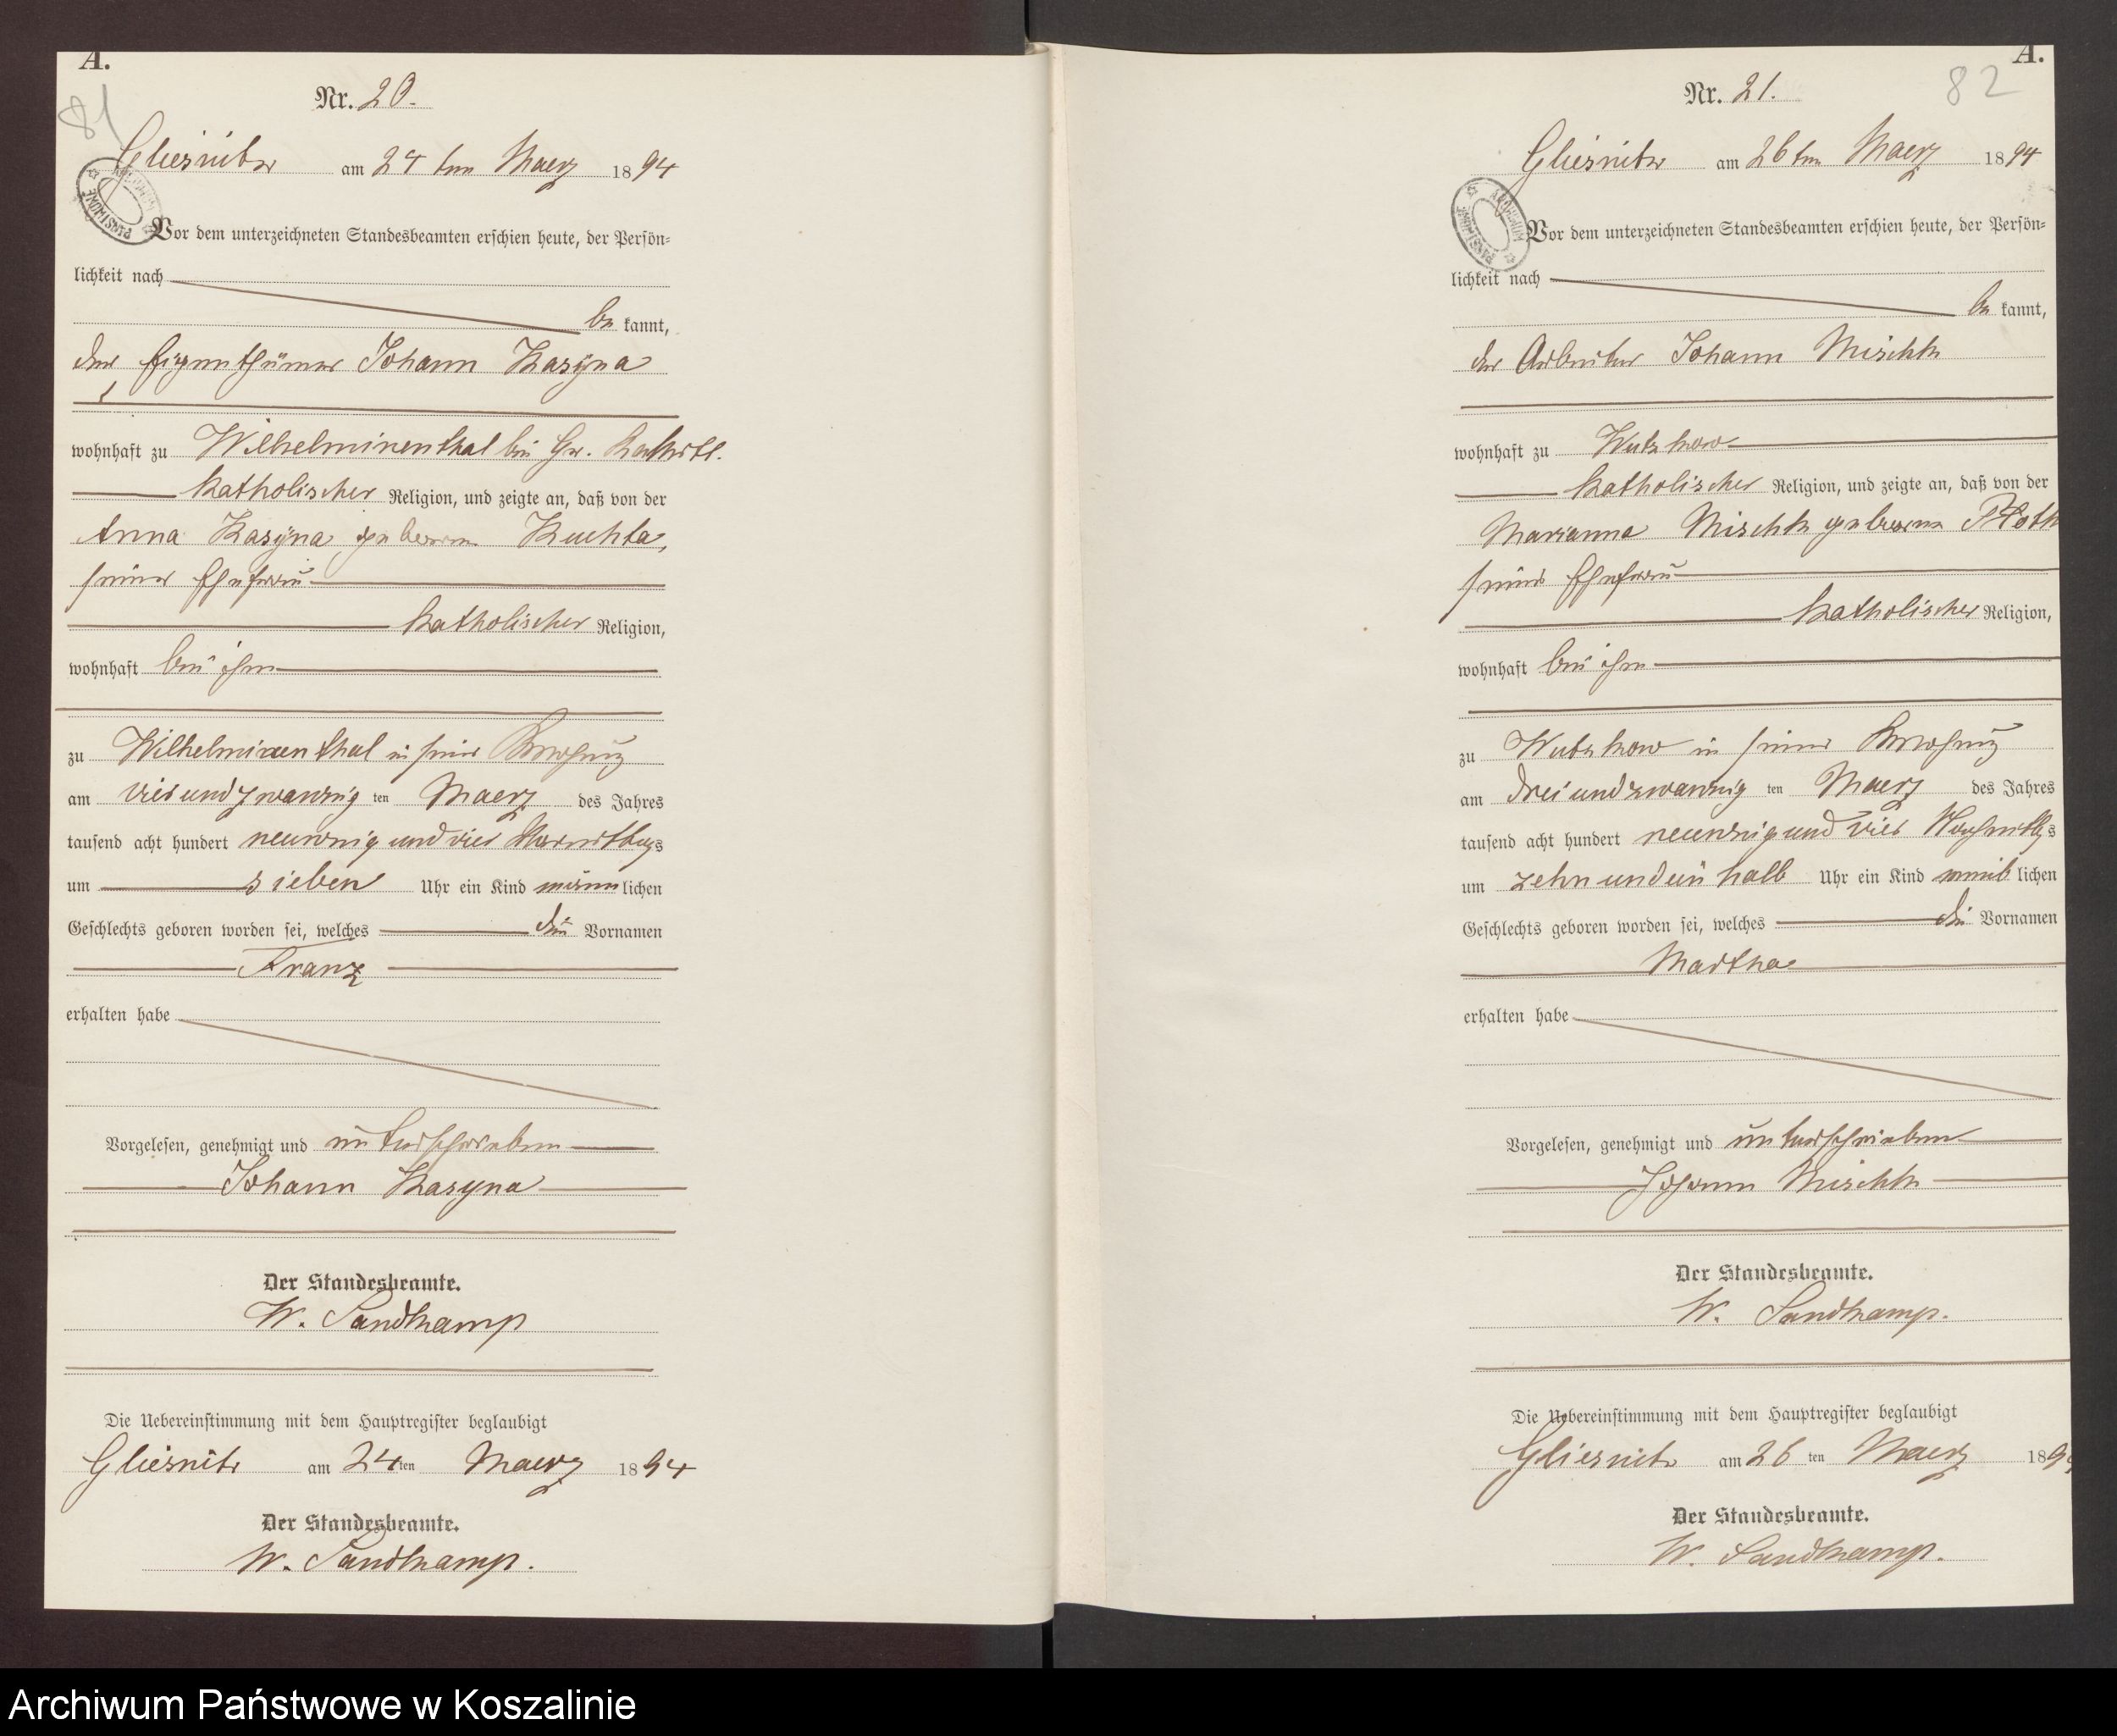 A.
81
Nr. 20.
Gliesnitz am 24 ten Maerz 1894
ARCHIWUM PAŃSTWOWE
Vor dem unterzeichneten Standesbeamten erschien heute, der Persön-
lichkeit nach
be kannt,
der Eigenthümer Johann Kasyna
wohnhaft zu Wilhelminenthal bei Gr.
katholischer Religion, und zeigte an, daß von der
Anna Kasyna geborene Kuchta,
seiner Ehefrau
katholischer Religion,
wohnhaft bei ihm
zu Wilhelminenthal in seiner Wohnung
am vierundzwanzig ten Maerz des Jahres
tausend acht hundert neunzig und vier Vormittags
um sieben Uhr ein Kind männlichen
Geschlechts geboren worden sei, welches den Vornamen
Franz
erhalten habe
Vorgelesen, genehmigt und unterschrieben
Johann Kasyna
Der Standesbeamte.
W. Sandkamp
Die Uebereinstimmung mit dem Hauptregister beglaubigt
Gliesnitz am 24 ten Maerz 1894
Der Standesbeamte.
W. Sandkamp.
A.
82
Nr. 21.
Gliesnitz am 26 ten Maerz 1894
ARCHIWUM PAŃSTWOWE
Vor dem unterzeichneten Standesbeamten erschien heute, der Persön-
lichkeit nach
be kannt,
der Arbeiter Johann Mischke
wohnhaft zu Wutzkow
katholischer Religion, und zeigte an, daß von der
Marianna Mischke geborene
seiner Ehefrau
katholischer Religion,
wohnhaft bei ihm
zu Wutzkow in seiner Wohnung
am dreiundzwanzig ten Maerz des Jahres
tausend acht hundert neunzig und vier Nachmittags
um zehn und ein halb Uhr ein Kind weiblichen
Geschlechts geboren worden sei, welches den Vornamen
Martha
erhalten habe
Vorgelesen, genehmigt und unterschrieben
Johann Mischke
Der Standesbeamte.
W. Sandkamp.
Die Uebereinstimmung mit dem Hauptregister beglaubigt
Gliesnitz am 26 ten Maerz 1894
Der Standesbeamte.
W. Sandkamp.
Archiwum Państwowe w Koszalinie